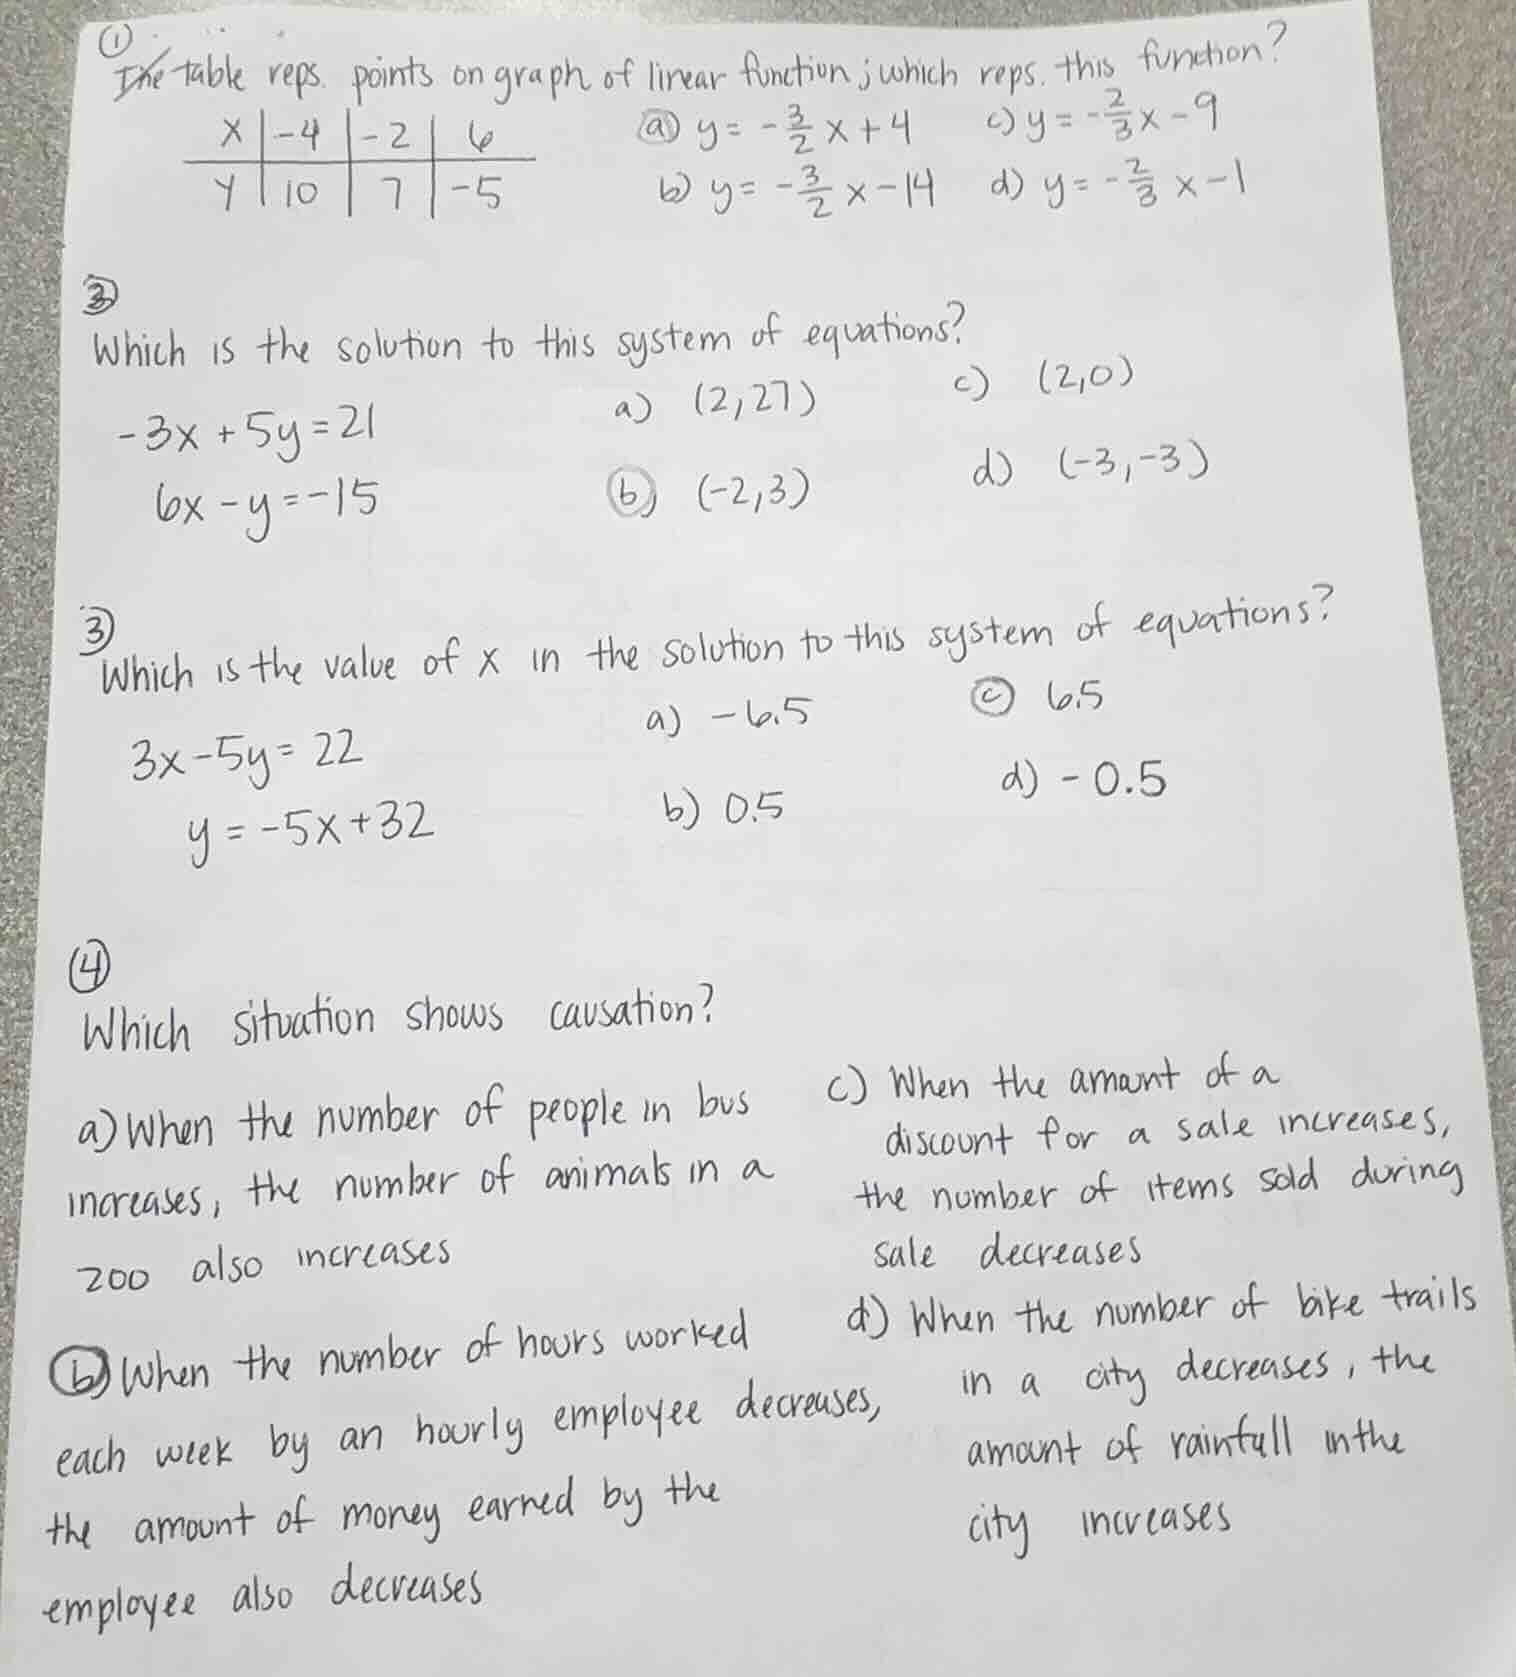 ①
The table reps. points on graph of linear function; which reps. this function?
x | -4 | -2 | 6
y | 10 | 7 | -5
a) y = -3/2 x + 4
b) y = -3/2 x - 14
c) y = -2/3 x - 9
d) y = -2/3 x - 1
②
Which is the solution to this system of equations?
-3x + 5y = 21
6x - y = -15
a) (2,27)
b) (-2,3)
c) (2,0)
d) (-3,-3)
③
Which is the value of x in the solution to this system of equations?
3x - 5y = 22
y = -5x + 32
a) -6.5
b) 0.5
c) 6.5
d) -0.5
④
Which situation shows causation?
a) When the number of people in bus
increases, the number of animals in a
zoo also increases
b) When the number of hours worked
each week by an hourly employee decreases,
the amount of money earned by the
employee also decreases
c) When the amount of a
discount for a sale increases,
the number of items sold during
sale decreases
d) When the number of bike trails
in a city decreases, the
amount of rainfall in the
city increases